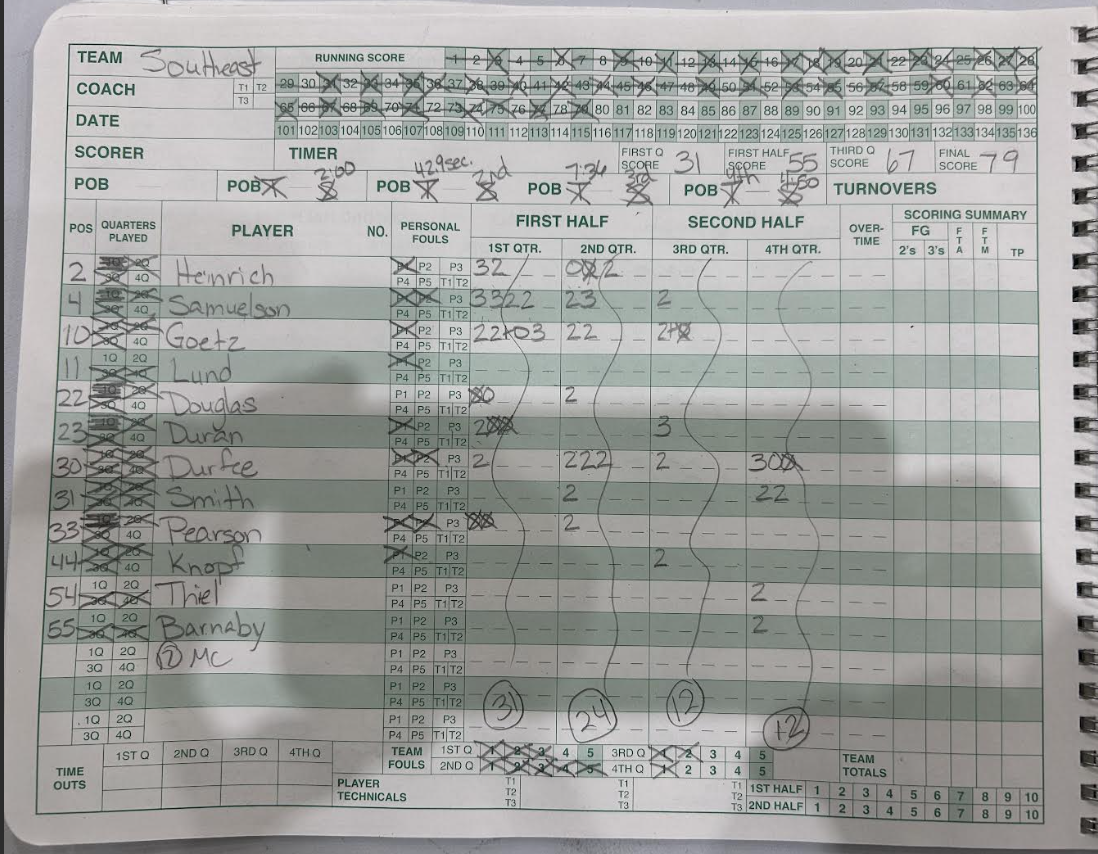 TEAM Southeast RUNNING SCORE 1 2 3 4 5 6 7 8 9 10 11 12 13 14 15 16 17 18 19 20 21 22 23 24 25 26 27 28
COACH T1 T2 T3 29 30 31 32 33 34 35 36 37 38 39 40 41 42 43 44 45 46 47 48 49 50 51 52 53 54 55 56 57 58 59 60 61 62 63 64
DATE 65 66 67 68 69 70 71 72 73 74 75 76 77 78 79 80 81 82 83 84 85 86 87 88 89 90 91 92 93 94 95 96 97 98 99 100
101 102 103 104 105 106 107 108 109 110 111 112 113 114 115 116 117 118 119 120 121 122 123 124 125 126 127 128 129 130 131 132 133 134 135 136
SCORER TIMER FIRST Q SCORE 31 FIRST HALF SCORE 55 THIRD Q SCORE 67 FINAL SCORE 79
2:00 42.9sec. 2nd 7:36 3rd 4th 4:50
POB POB POB POB POB TURNOVERS
POS QUARTERS PLAYED PLAYER NO. PERSONAL FOULS FIRST HALF SECOND HALF OVER-TIME SCORING SUMMARY
1ST QTR. 2ND QTR. 3RD QTR. 4TH QTR. FG 2's 3's FTA FTM TP
2 4Q Heinrich P2 P3 32 2
P4 P5 T1 T2
4 4Q Samuelson P3 3322 23 2
P4 P5 T1 T2
10 4Q Goetz P2 P3 22 22
P4 P5 T1 T2
11 1Q 2Q Lund P2 P3
P4 P5 T1 T2
22 4Q Douglas P1 P2 P3 2
P4 P5 T1 T2
23 4Q Duran P2 P3 2 3
P4 P5 T1 T2
30 Durfee P3 2 222 2 30
P4 P5 T1 T2
31 Smith P1 P2 P3 2 22
P4 P5 T1 T2
33 4Q Pearson P3 2
P4 P5 T1 T2
44 4Q Knopf P2 P3 2
P4 P5 T1 T2
54 1Q 2Q Thiel P1 P2 P3 2
P4 P5 T1 T2
55 1Q 2Q Barnaby P1 P2 P3 2
P4 P5 T1 T2
1Q 2Q 12 MC P1 P2 P3
3Q 4Q P4 P5 T1 T2
1Q 2Q P1 P2 P3
3Q 4Q P4 P5 T1 T2 31 24 12 12
1Q 2Q P1 P2 P3
3Q 4Q P4 P5 T1 T2
TIME OUTS 1ST Q 2ND Q 3RD Q 4TH Q TEAM FOULS 1ST Q 1 2 3 4 5 3RD Q 1 2 3 4 5 TEAM TOTALS
2ND Q 1 2 3 4 5 4TH Q 1 2 3 4 5
PLAYER TECHNICALS T1 T2 T3 T1 T2 T3 T1 T2 T3 1ST HALF 1 2 3 4 5 6 7 8 9 10
2ND HALF 1 2 3 4 5 6 7 8 9 10